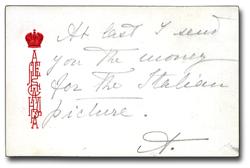 At last I send
you the money
for the Italian
picture.
A.